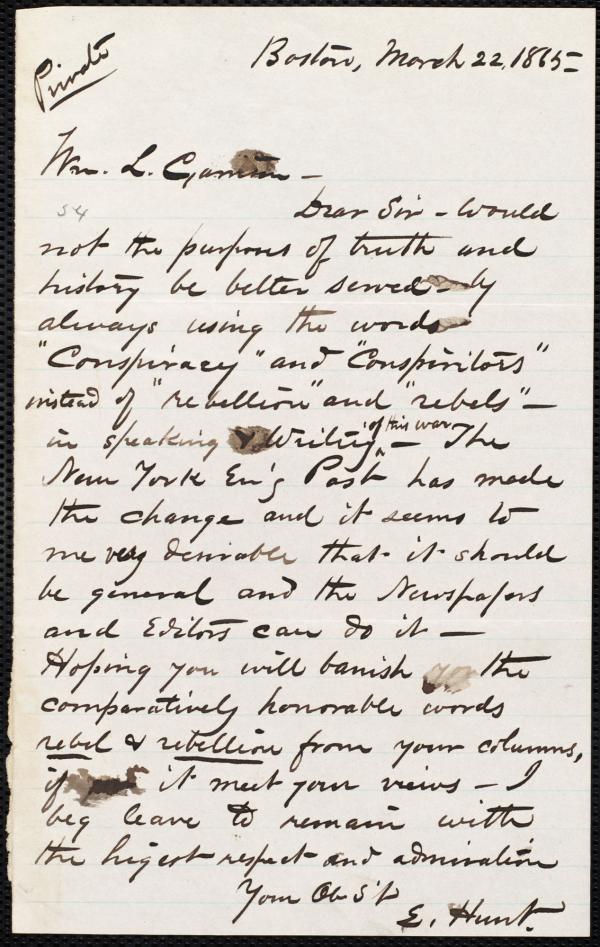 Private
Boston, March 22, 1865
Wm. L. Garrison –
54
Dear Sir – Would
not the purposes of truth and
history be better served – by
always using the words
"Conspiracy" and "Conspiritors"
instead of "rebellion" and "rebels" –
in speaking & Writing ^of this war – The
New York Eve'g Post has made
the change and it seems to
me very desirable that it should
be general and the Newspapers
and Editors can do it –
Hoping you will banish the
comparatively honorable words
rebel & rebellion from your columns,
if it meet your views – I
beg leave to remain with
the higest respect and admiration
Your Ob S't
E. Hunt.